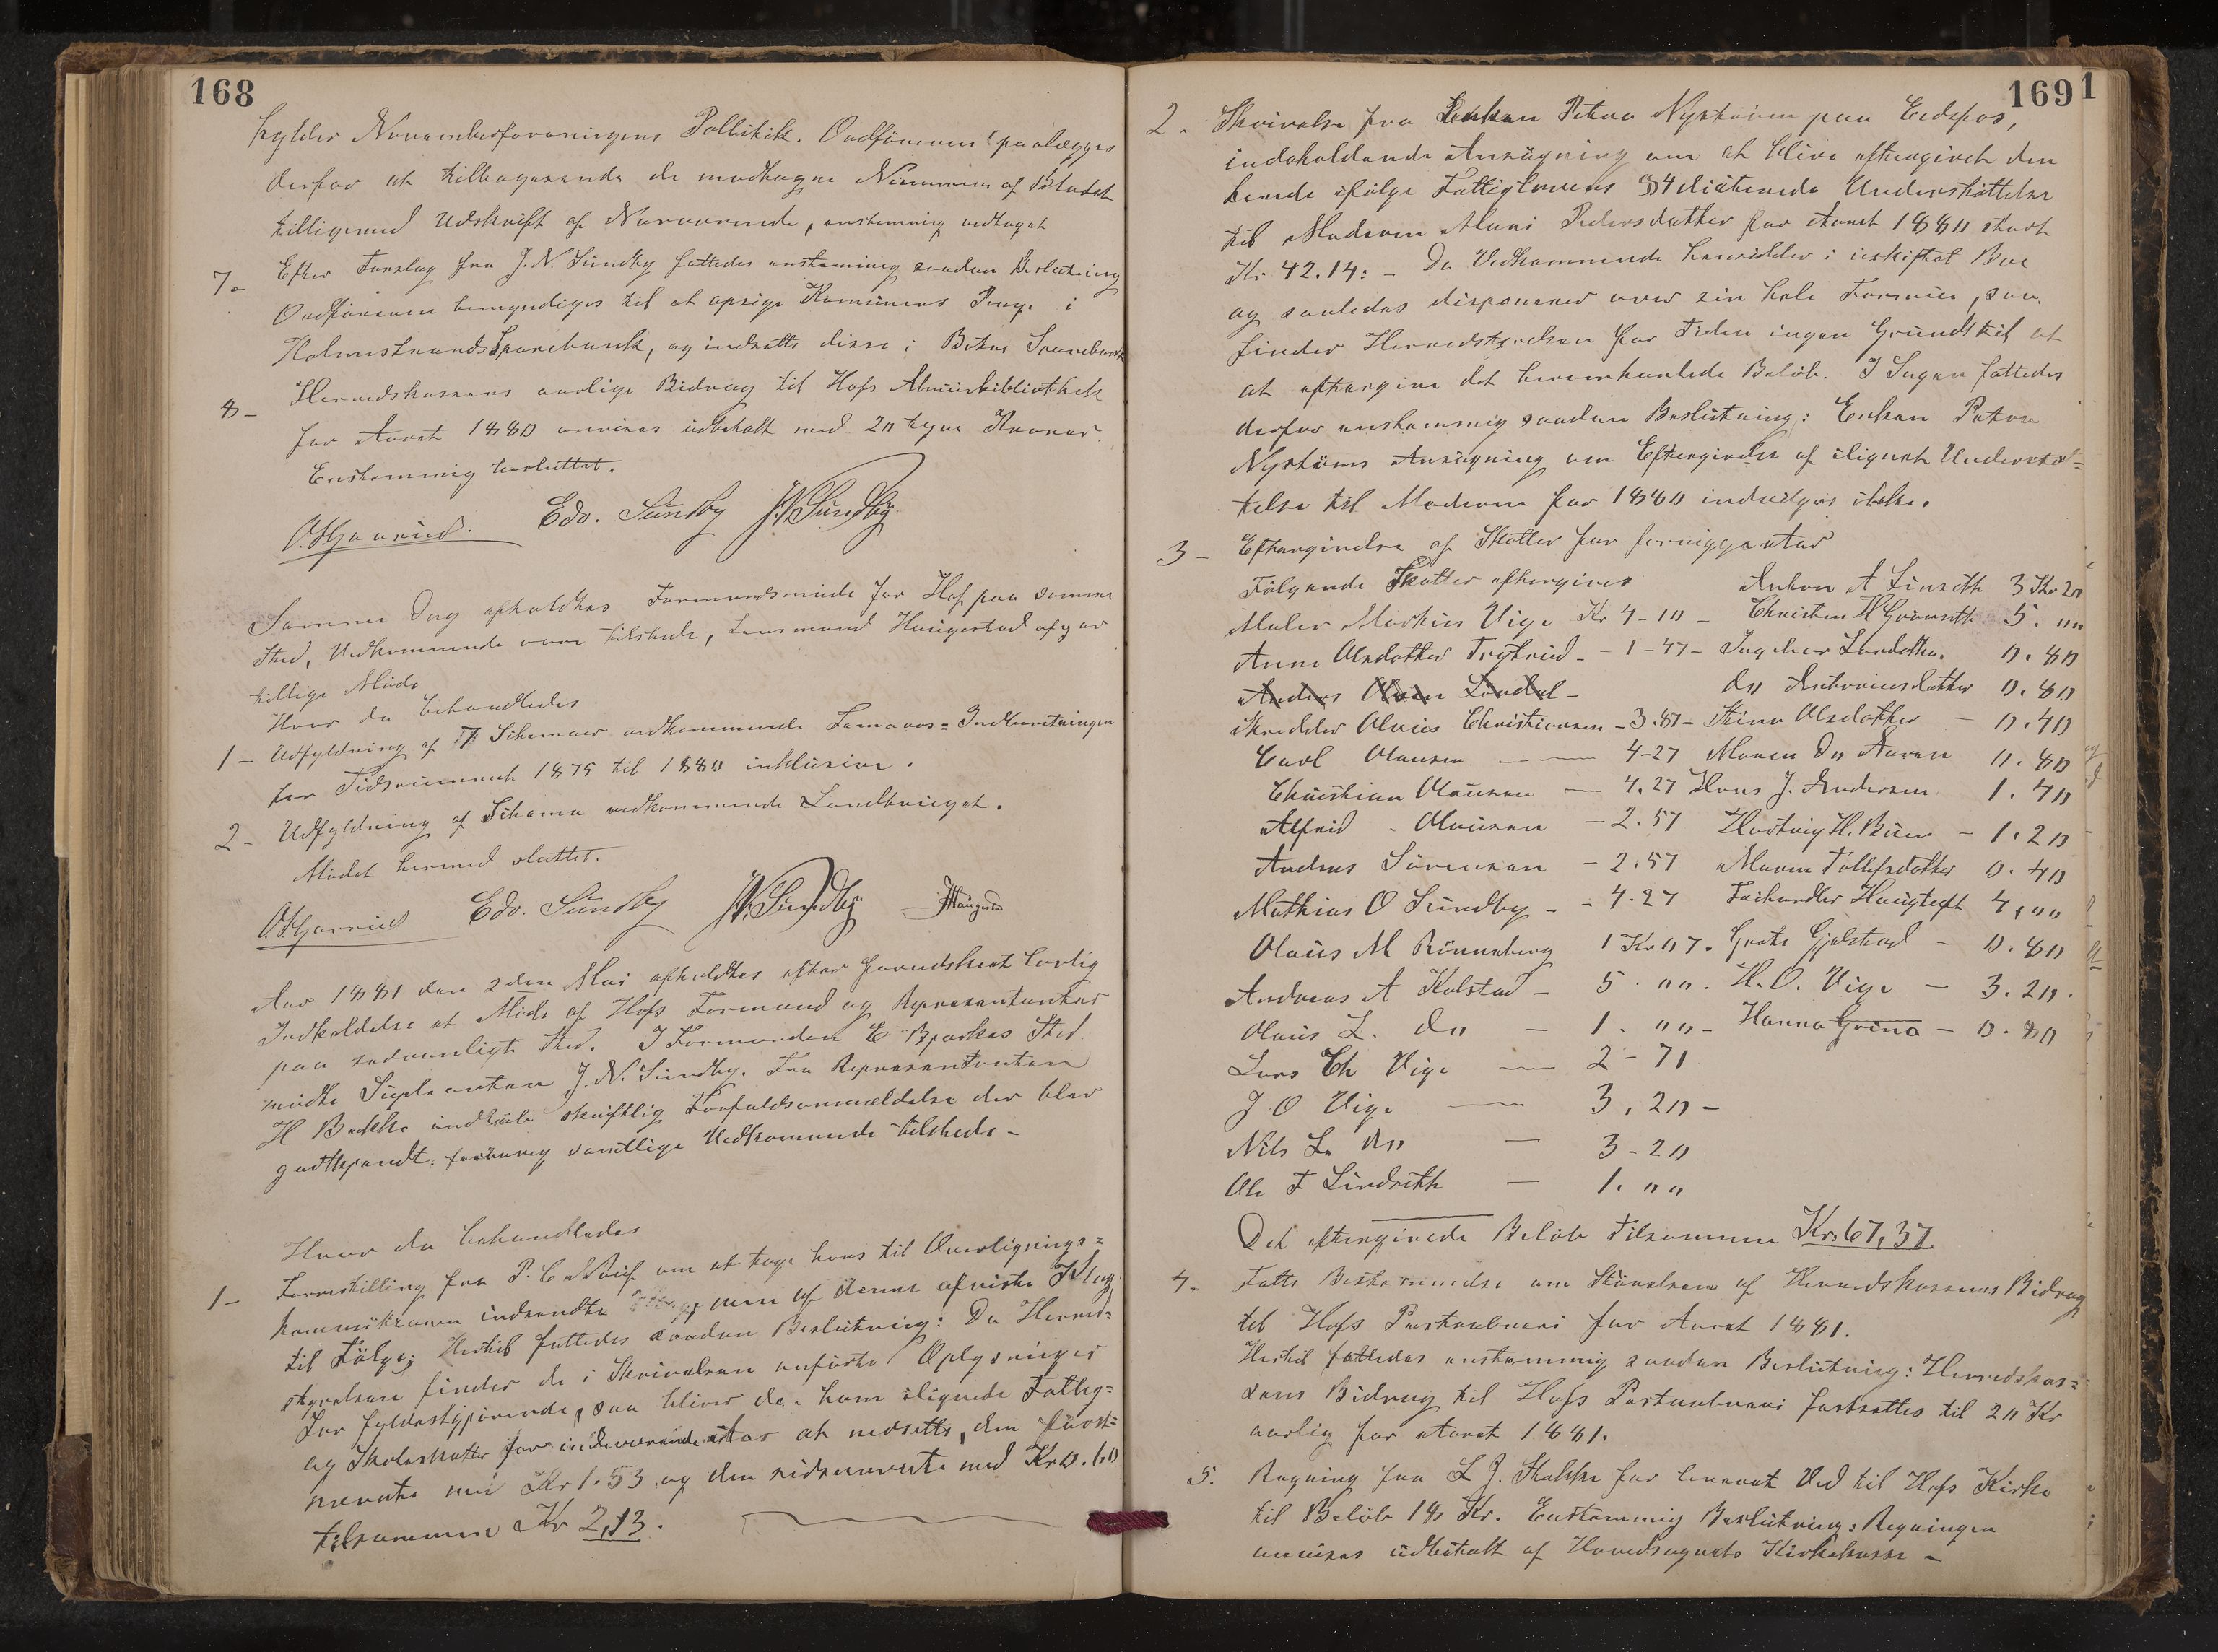 168
hylder Novemberforeningens Pollitik. Ordføreren paalægges
derfor at tilbagesende de modtagne Nummere af Bladet
tilligemed Udskrift af Nærværende, enstemmig vedtaget
7- Efter Forslag fra J. N. Sundby fattedes enstemmig saadan Beslutning
Ordføreren bemyndiges til at opsige Komunens Penge i
Holmestrands Sparebank, og indsætte disse i Botne Sparebank
8- Herredskassens aarlige Bidrag til Hofs Almuebibliothek
for Aaret 1880 anvises udbetalt med 20 tyve Kroner.
Enstemmig besluttet.
Edv. Sundby J.N.Sundby
Samme Dag afholdtes Formandsmøde for Hof paa samme
Sted, Vedkommende vare tilstede, Lensmand Haugestad afgav
tillige Møde
Hvor da behandledes
1- Udfyldning af Schemaer vedkommende Femaars=Indberetningen
for Tidsrummet 1875 til 1880 inklusive.
2- Udfyldning af Schema vedkommende Landbruget.
Mødet hermed sluttet.
Edv. Sundby J.N.Sundby
Aar 1881 den 2den Mai afholdtes efter forudskeet lovlig
Indkaldelse et Møde af Hofs Formænd og Repræsentanter
paa sædvanligt Sted. I Formanden E Bjerkes Sted
mødte Supleanten J. N. Sundby. Fra Repræsentanten
H Bakke indløb skriftlig Forfaldsanmældelse der blev
godtkjendt. forøvrig samtlige Vedkommende tilstede-
Hvor da behandledes
1- Forestilling fra P. C. om at tage hans til Overlignings=
kommisionen indsendte men af denne afviste Klage
til Følge; Hertil fattedes saadan Beslutning: Da Herred=
styrelsen finder de i Skrivelsen anførte Oplysninger
for fyldestgjørende, saa bliver de ham ilignede Fattig=
og Skoleskatter for indeværende Aar at nedsætte, den først=
nævnte med Kr 1.53 og den sidstnævnte med Kr 0.60
tilsammen Kr 2,13.
169 1
2. Skrivelse fra Enken Petra Nyström paa Eidsfos,
indeholdende Ansøgning om at blive eftergivet den
hende ifølge Fattiglovens § 4 Understøttelse
til Moderen Mari Pedersdatter for Aaret 1880 stort
Kr 42.14: - Da Vedkommende hensidder i uskiftet Boe
og saaledes disponerer over sin hele Formue, saa
finder Herredstyrelsen for Tiden ingen Grund til at
at eftergive det heromhandlede Beløb. I Sagen fattedes
derfor enstemmig saadan Beslutning: Enken Petra
Nystöms Ansøgning om Eftergivelse af ilignet Understøt=
telse til Moderen for 1880 indvilges ikke.
3- Eftergivelse af Skatter for forrigge Aar
Følgende Skatter eftergives Anton A Linseth 3 Kr 20
Maler Martin Vige Kr 4-10 - Christen H Grønseth 5. ""
Anne Olsdatter - 1-47 - Ingeborg Larsdatter 0.80
Anders Olsen Lindal - do 0.80
Skredder Olaus Christiansen - 3.87 - Stine Olsdatter - 0.40
Carl Olausen - 4-27 Maren do Aasen 0.80
Christian Olausen - 4.27 Hans J. Andersen 1.40
Alfred Olausen - 2.57 Hartvig H. Buen - 1.20
Andreas Sörensen - 2.57 Maren Tollefsdatter 0.40
Mathias O Sundby - - 4.27 Haugtuft 4,00
Olaus M Rönneberg 1 Kr 07. Grete Gjelstad - 0.80
Andreas A Kolstad - 5. "". H. O. Vige - 3.20.
Olaus L. do - 1. "" - Hanna Grina - 0.80
Lars Ch Vige - 2-71
J O Vige - 3.20 -
Nils L. do - 3-20
Ole F Lindseth - 1. ""
Det eftergivede Beløb tilsammen Kr 67,37
4. Fatte Bestemmelse om Størrelsen af Herredskassens Bidrag
til Hofs Postaabneri for Aaret 1881.
Hertil fattedes enstemmig saadan Beslutning: Herredskas=
sens Bidrag til Hofs Postaabneri fastsættes til 20 Kr
aarlig for Aaret 1881.
5. Regning fra L J. Stakke for leveret Ved til Hofs Kirke
til Beløb 18 Kr. Enstemmig Beslutning: Regningen
anvises udbetalt af Hovedsognets Kirkekasse -